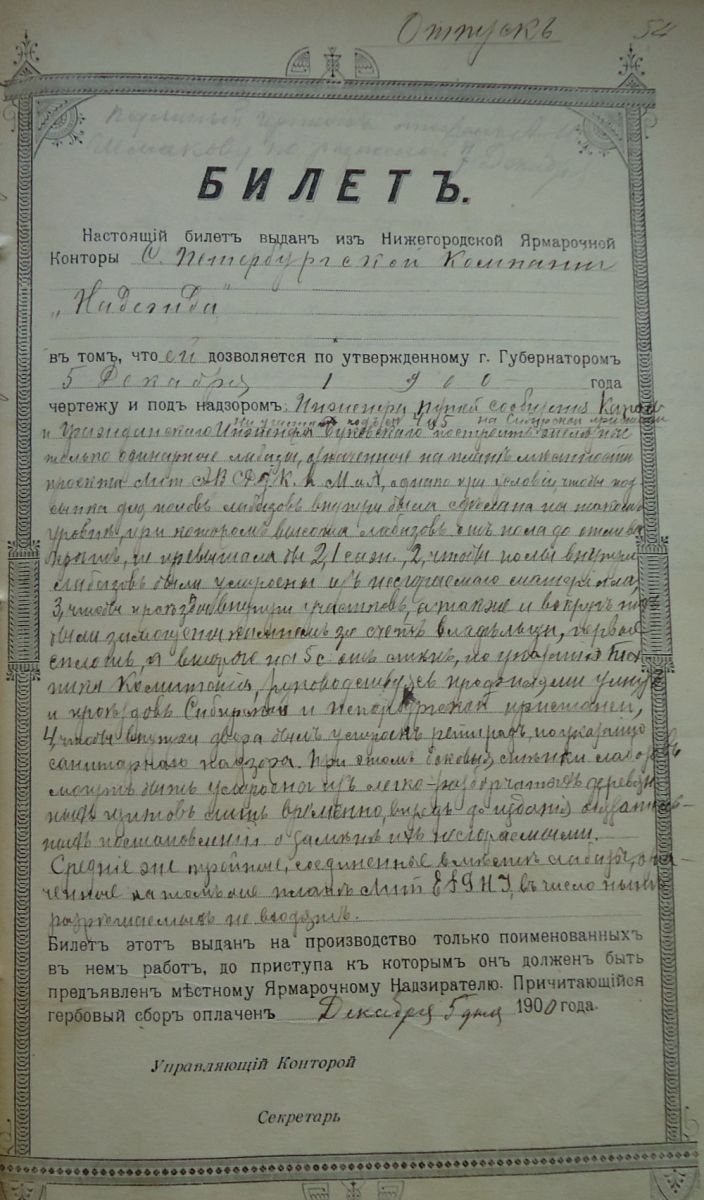 Отпускъ 54
БИЛЕТЪ.
Настоящій билетъ выданъ изъ Нижегородской Ярмарочной
Конторы С. Петербургской Компаніи
„Надежда"
въ томъ, что ей дозволяется по утвержденному г. Губернаторомъ
5 Декабря 1900 года
чертежу и подъ надзоромъ Инженера путей сообщенія
и Гражданскаго Инженера построить
на Сибирской пристани
только одинарные лабазы, означенные на планѣ мѣстности
проекта Лит. К. Л. М и однако при условіи, чтобы под-
сыпка для половъ лабазовъ внутри была сдѣлана на такомъ
уровнѣ, при которомъ высота лабазовъ отъ пола до
крыши, не превышала бы 2,1 саж., 2, чтобы полы внутри
лабазовъ были устроены изъ несгораемаго матеріала,
3, чтобы проѣзды внутри участковъ, а также и вокругъ
были замощены камнемъ за счетъ владѣльца, первые
сплошь, а вторые на 5 с. отъ стѣнъ, по указанію
Комитета, руководствуясь профилями улицъ
и проѣздовъ Сибирской и Петербургской пристаней,
4, чтобы внутри двора былъ устроенъ ретирадъ, по указанію
санитарнаго надзора. При этомъ боковыя стѣнки лабазовъ
могутъ быть устроены изъ легко-разборчатыхъ деревян-
ныхъ щитовъ лишь временно, впредь до изданія обязатель-
ныхъ постановленій о замѣнѣ ихъ несгораемыми.
Средніе же тройные, соединенные вмѣстѣ лабазы, озна-
ченные на томъ же планѣ Лит. въ число нынѣ
разрѣшаемыхъ не входятъ.
Билетъ этотъ выданъ на производство только поименованныхъ
въ немъ работъ, до приступа къ которымъ онъ долженъ быть
предъявленъ мѣстному Ярмарочному Надзирателю. Причитающійся
гербовый сборъ оплаченъ Декабря 5 дня 1900 года.
Управляющій Конторой
Секретарь